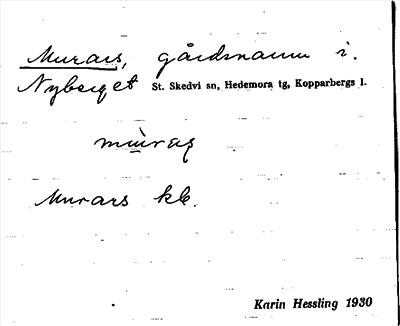 Murars, gårdsnamn i.
Nyberget St. Skedvi sn, Hedemora tg, Kopparbergs l.
Murars kb.
Karin Hessling 1930